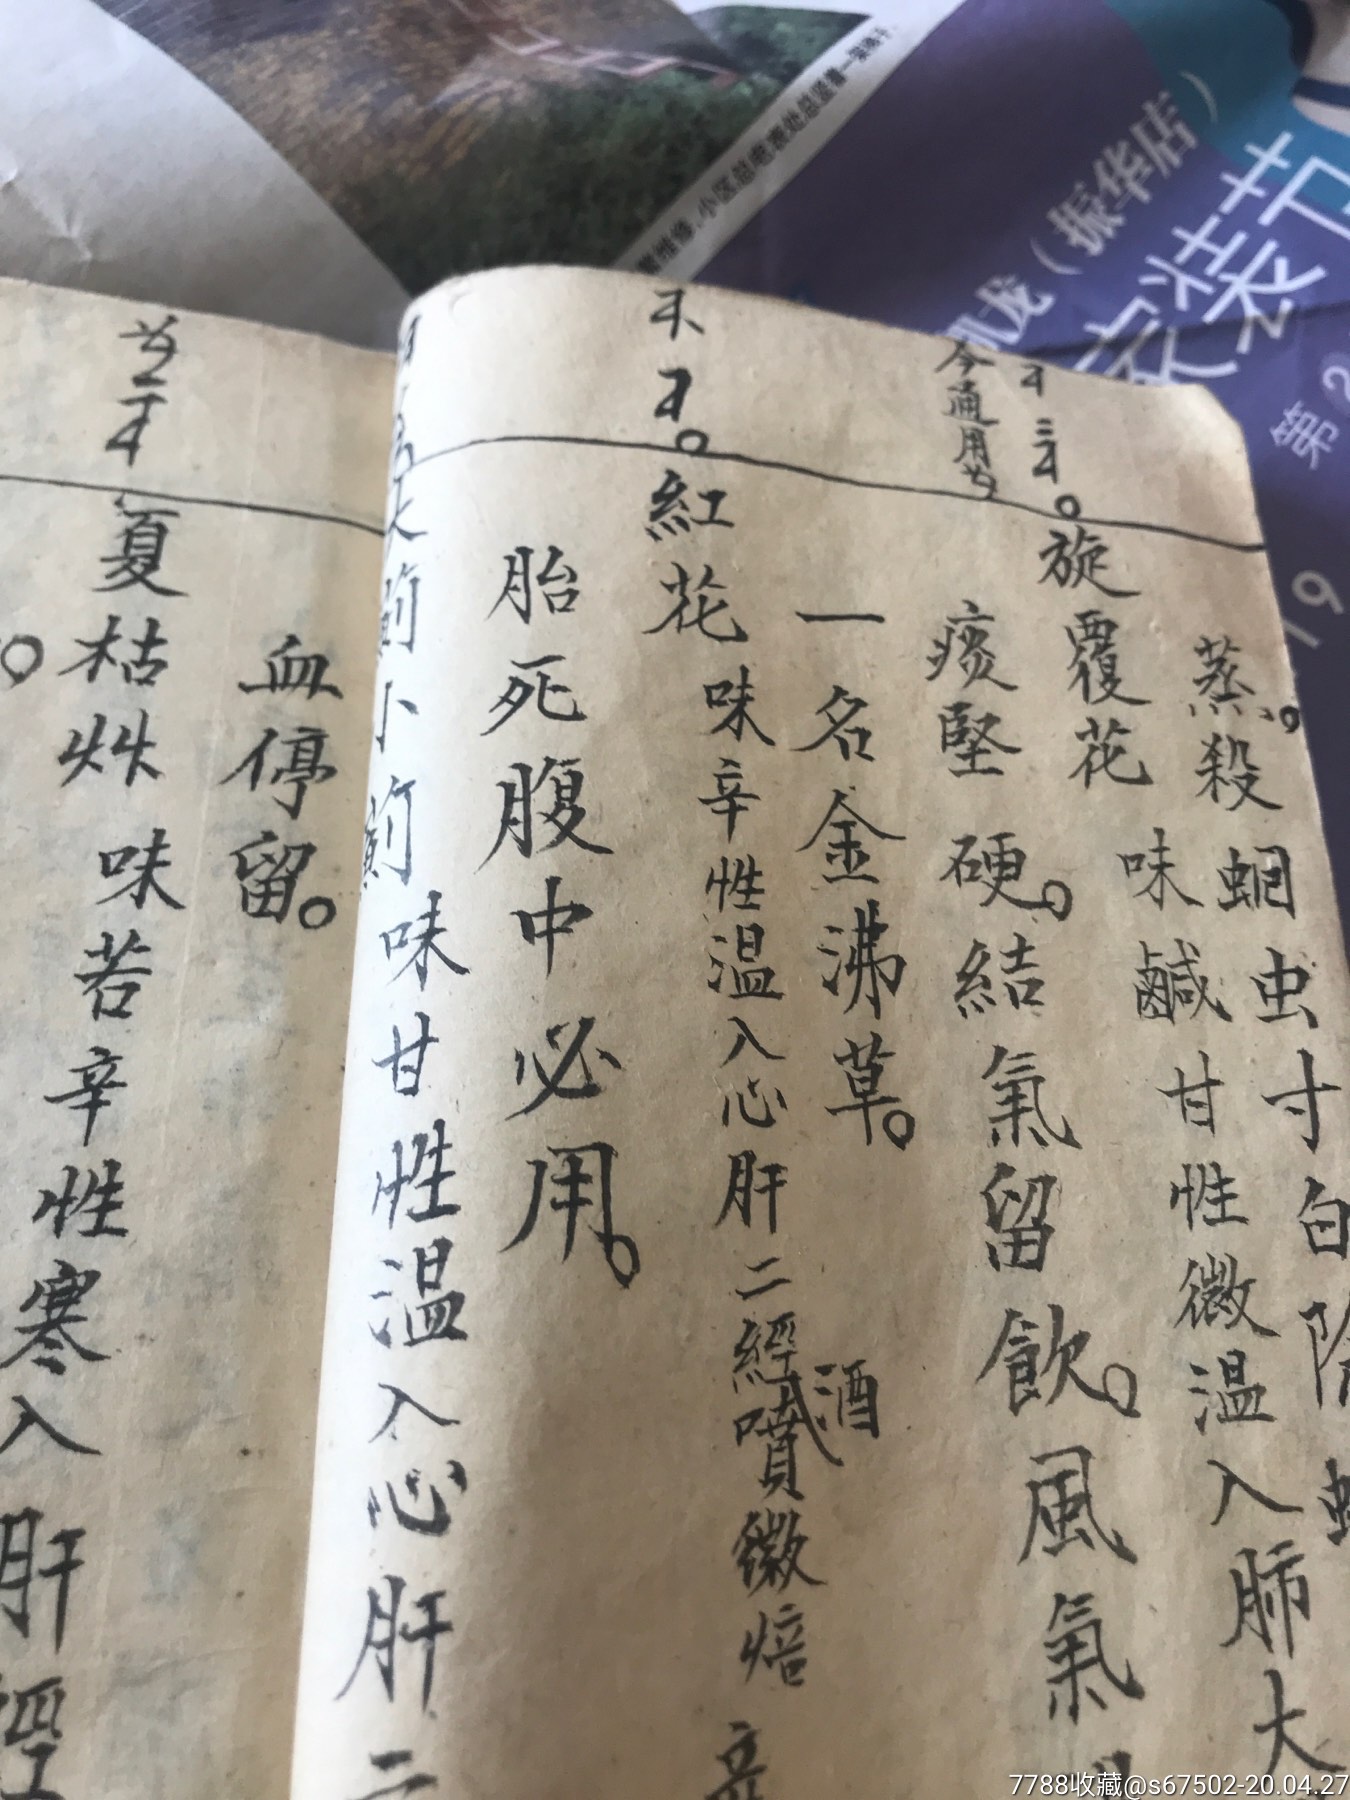 蒸。殺蛔虫寸白
旋覆花 味鹹甘性微温入肺大
今通用
痰堅硬。結氣留飲。風氣
一名金沸草。
紅花 味辛性温入心肝二經酒噴微焙
胎死腹中必用。
大薊小薊 味甘性温入心肝二
血停留。
夏枯艸 味若辛性寒入肝經
家装节
龙(振华店)
第2
19
7788收藏@s67502-20.04.27